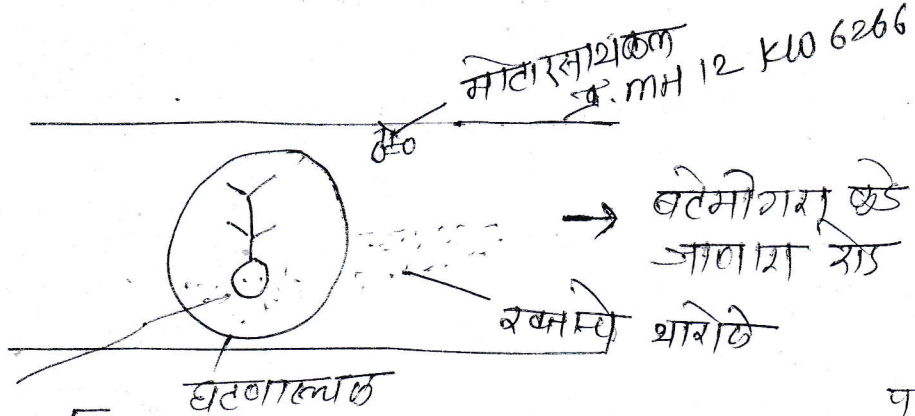 मोटारसायकल
क्र. MH 12 KW 6266
बटेमोगरा कडे
जाणारा रोड
रक्ताचे थारोळे
घटनास्थळ
प